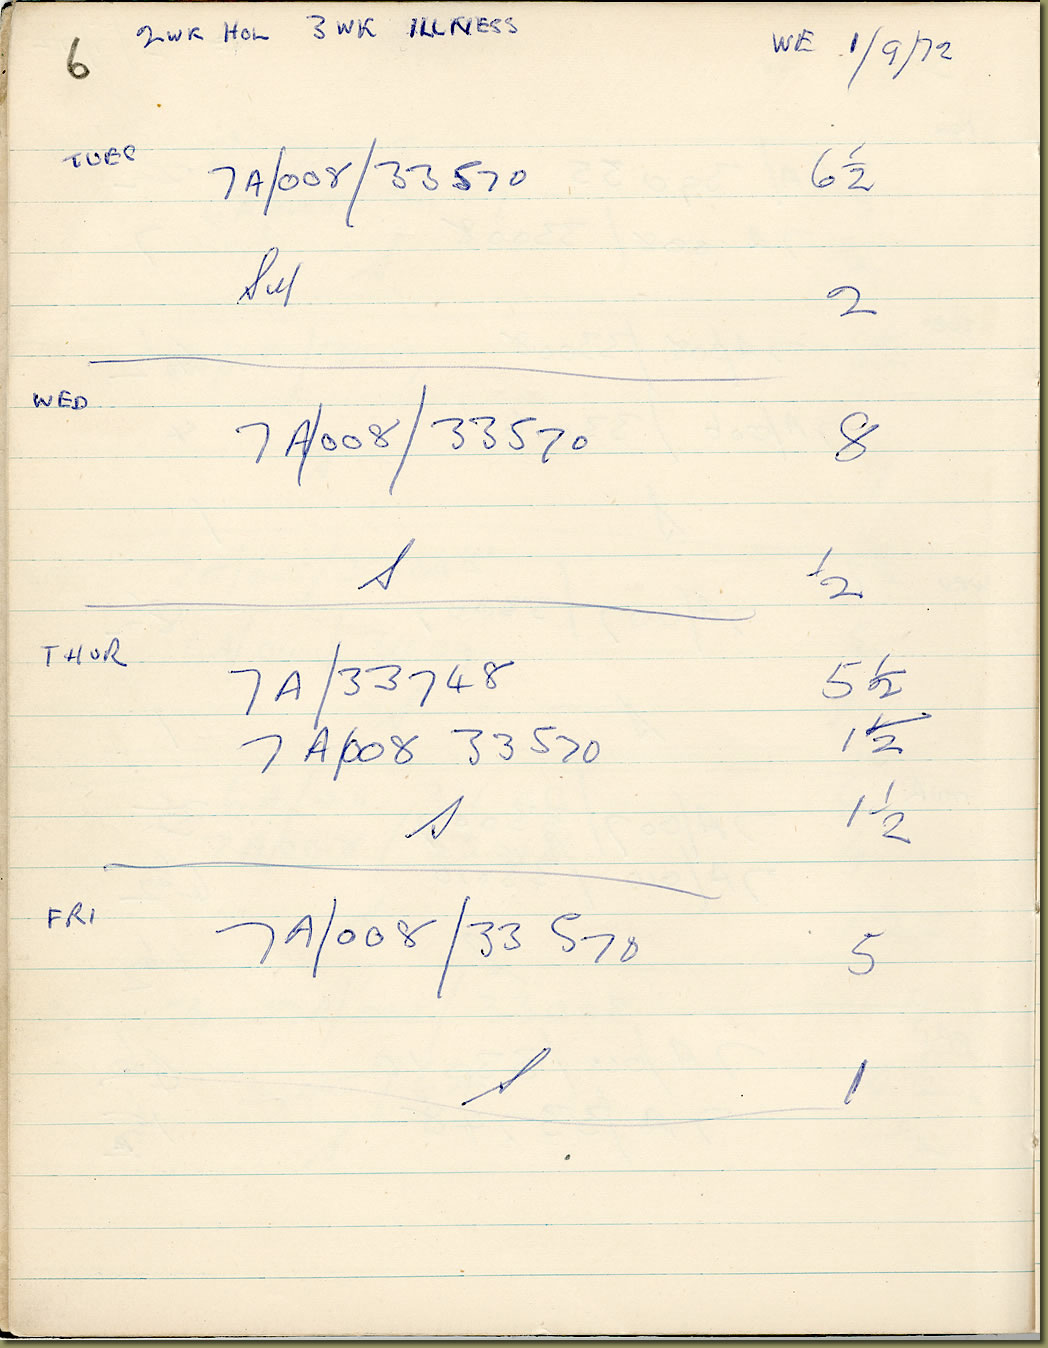 2 WK HOL 3 WK ILLNESS
6 WE 1/9/72
TUES 7A/008/33570 6 1/2
2
WED 7A/008/33570 8
S 1/2
THUR 7A/33748 5 1/2
7A/008 33570 1 1/2
S 1 1/2
FRI 7A/008/33570 5
S 1